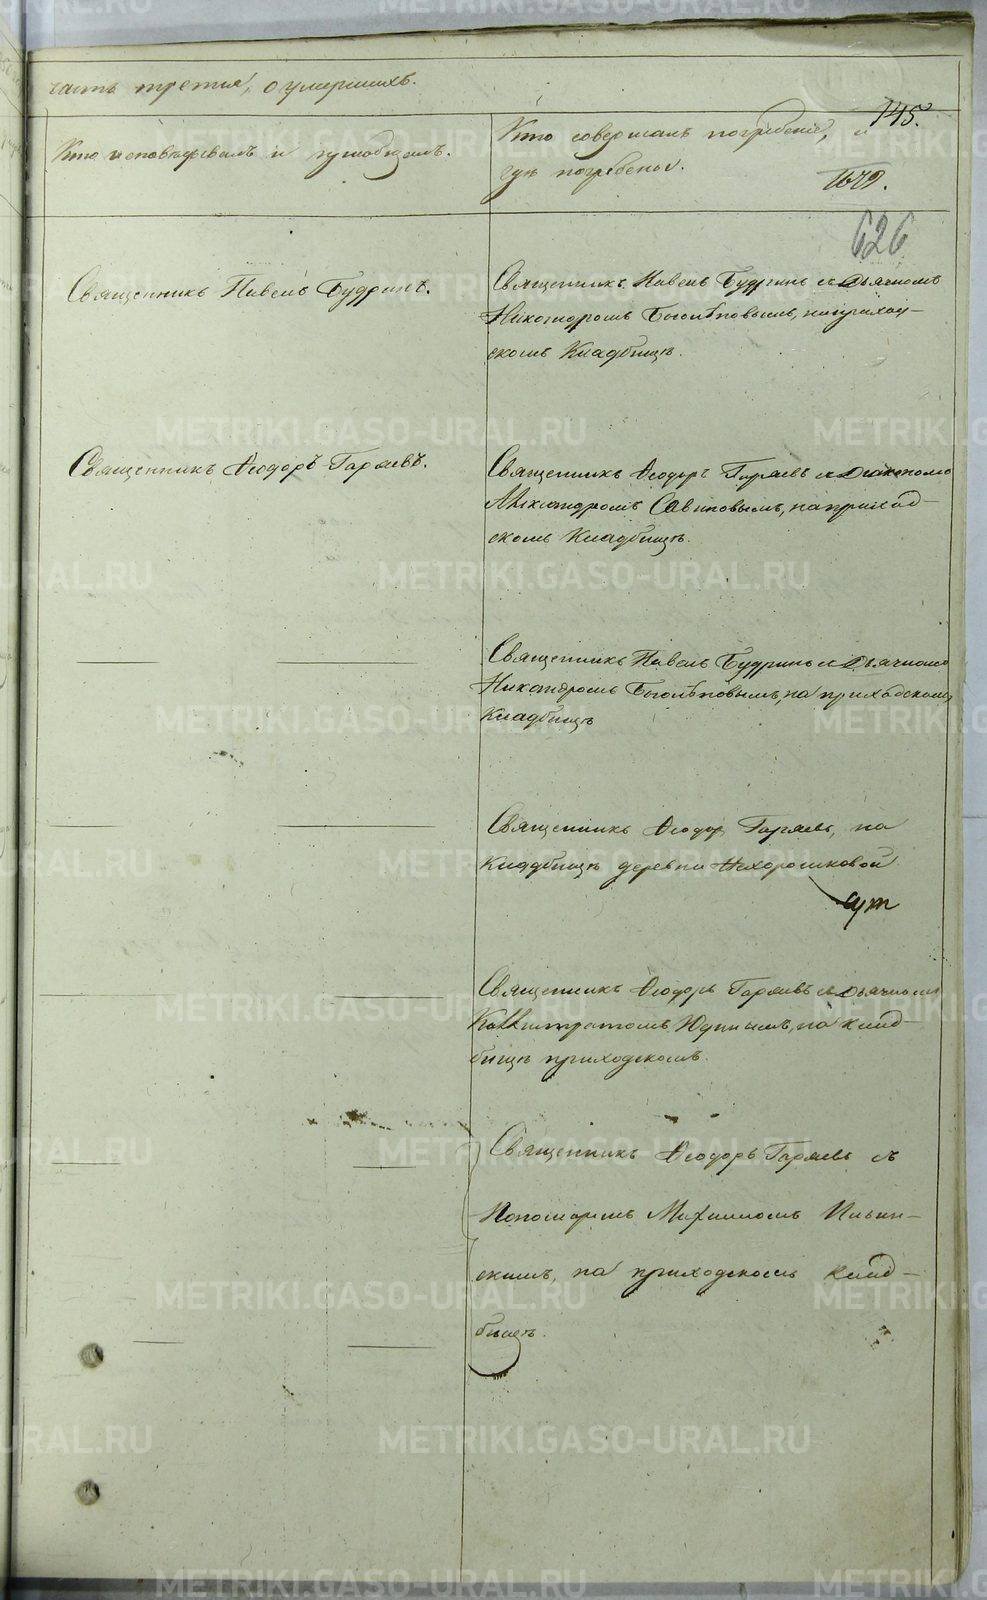 часть третья, о умершихъ.
145.
Кто исповѣдывалъ и пріобщалъ.
Кто совершалъ погребеніе, и
гдѣ погребены.
626
Священникъ Павелъ Будринъ.
Священникъ Павелъ Будринъ съ Дьячкомъ
Никандромъ Боголѣповымъ, на приход-
скомъ Кладбищѣ.
Священникъ Ѳеодоръ Гаряевъ.
Священникъ Ѳеодоръ Гаряевъ съ Діакономъ
Александромъ Савиновымъ, на приход-
скомъ Кладбищѣ.
Священникъ Павелъ Будринъ съ Дьячкомъ
Никандромъ Боголѣповымъ, на приходскомъ
Кладбищѣ
Священникъ Ѳеодоръ Гаряевъ, на
Кладбищѣ деревни Нехорошковой
Священникъ Ѳеодоръ Гаряевъ съ Дьячкомъ
Каллистратомъ Юдинымъ, на Клад-
бищѣ приходскомъ.
Священникъ Ѳеодоръ Гаряевъ съ
Пономаремъ Михаиломъ Ильин-
скимъ, на приходскомъ Клад-
бищѣ.
METRIKI.GASO-URAL.RU